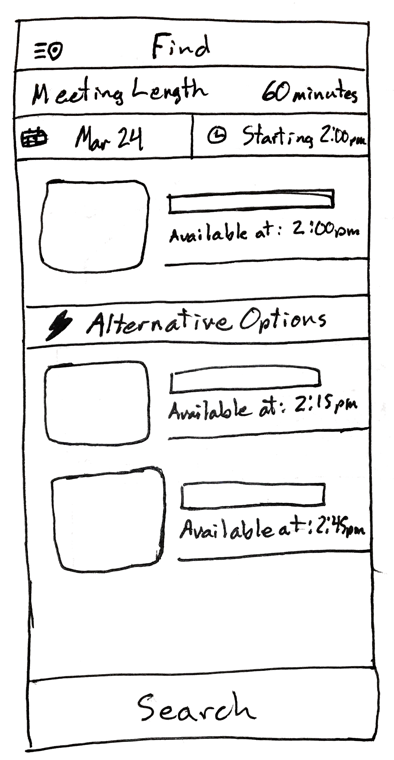 Find
Meeting Length 60 minutes
Mar 24 Starting 2:00pm
Available at: 2:00pm
Alternative Options
Available at: 2:15pm
Available at: 2:45pm
Search